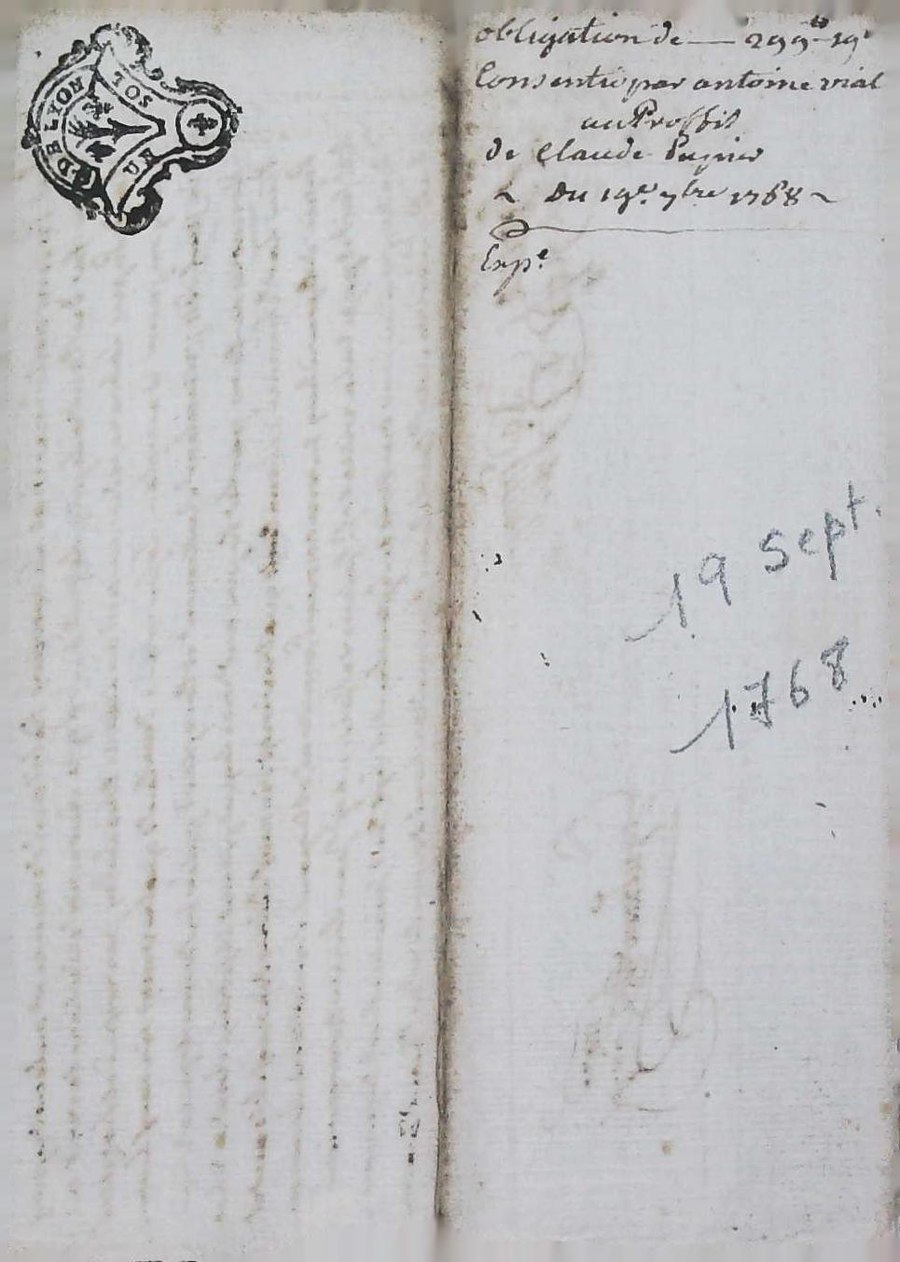 DE LYON
UN SOL
obligation de — 299ᵗᵗ 19ˢ
Consentie par antoine vial
au Proffit
de Claude
~ Du 19ᵉ 7bre 1768 ~
Expᵉ
19 Sept.
1768